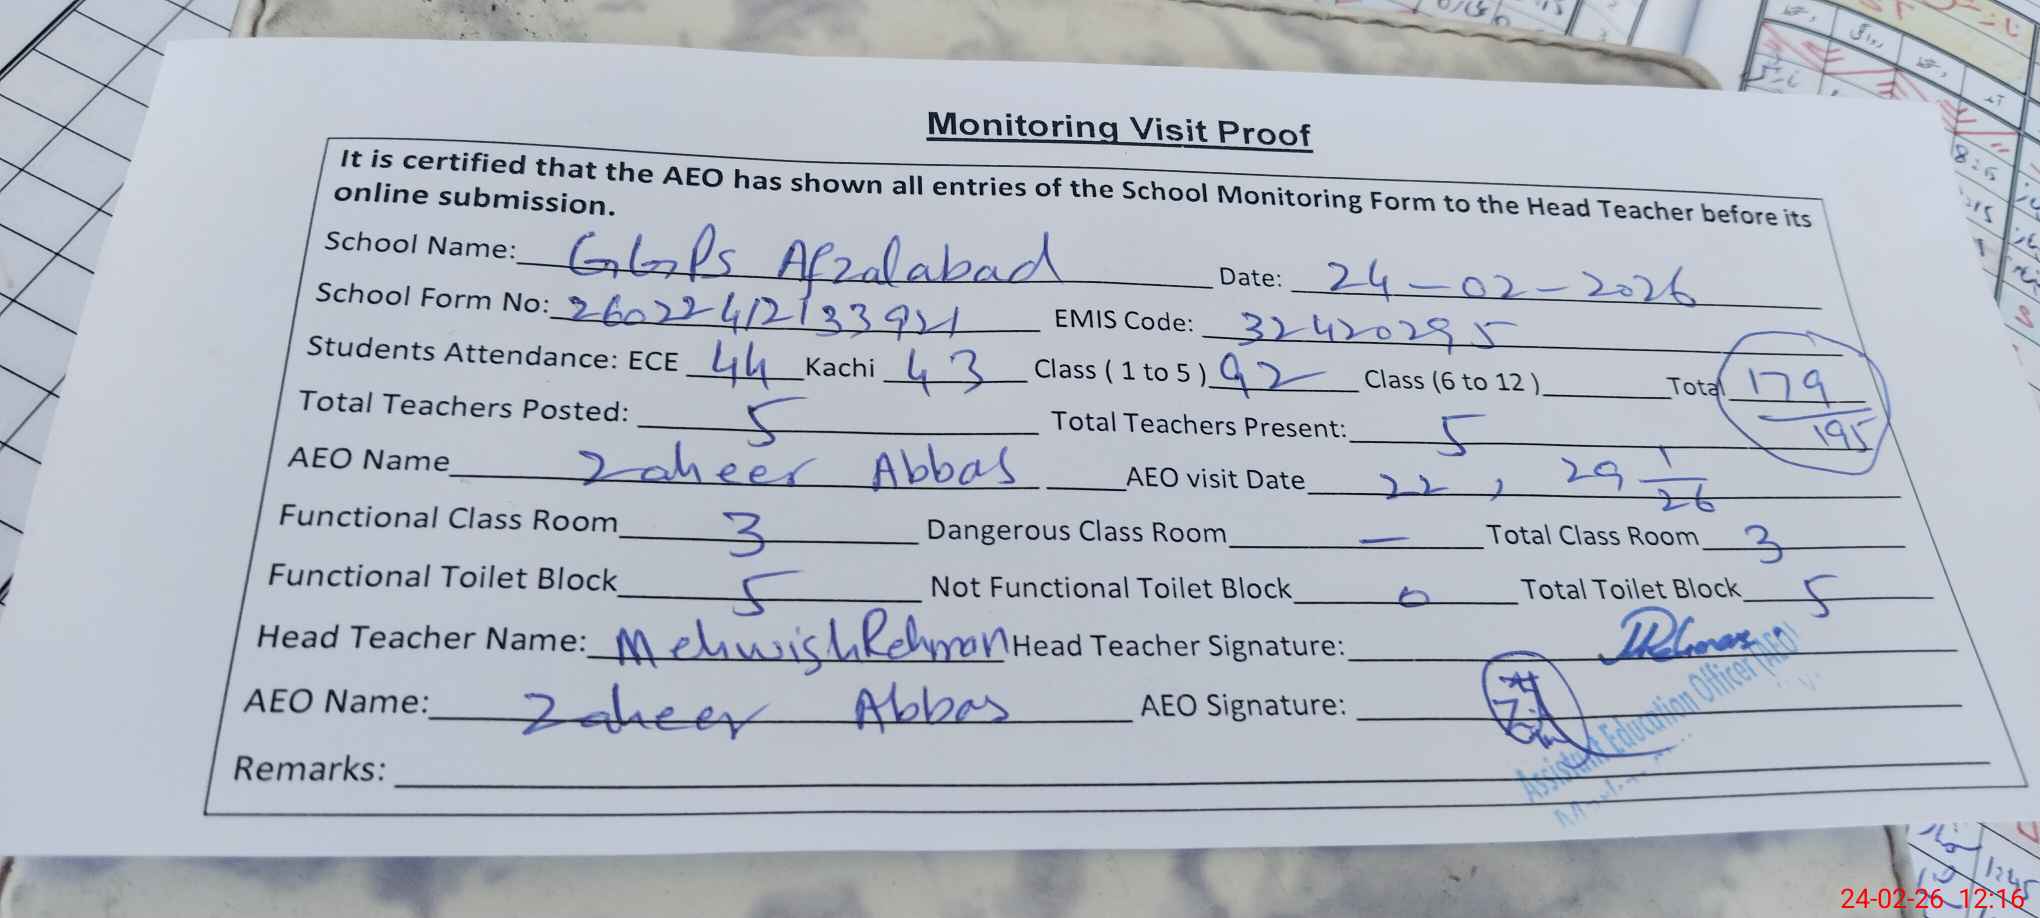 Monitoring Visit Proof
It is certified that the AEO has shown all entries of the School Monitoring Form to the Head Teacher before its
online submission.
School Name: GGPS Afzalabad Date: 24-02-2026
School Form No: EMIS Code: 32420295
Students Attendance: ECE 44 Kachi 43 Class ( 1 to 5 ) 92 Class (6 to 12 ) Total 179
195
Total Teachers Posted: 5 Total Teachers Present: 5
AEO Name Zaheer Abbas AEO visit Date 22 , 29 1/26
Functional Class Room 3 Dangerous Class Room — Total Class Room 3
Functional Toilet Block 5 Not Functional Toilet Block 0 Total Toilet Block 5
Head Teacher Name: Mehwish Rehman Head Teacher Signature:
AEO Name: Zaheer Abbas AEO Signature:
Assistant Education Officer (AEO)
Remarks:
24-02-26 12:16